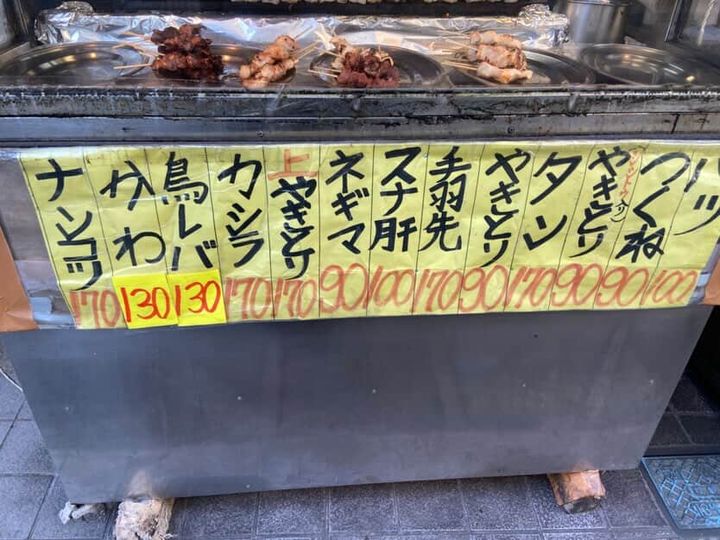 ハツ
100
つくね
90
やきとり
(ニンニク入り)
90
タン
170
やきとり
90
手羽先
170
スナ肝
100
ネギマ
90
上やきとり
170
カシラ
170
鳥レバ
130
かわ
130
ナンコツ
170